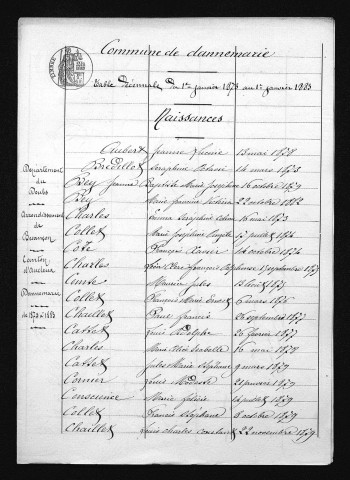 Commune de dannemarie
Table Décennale du 1er janvier 1873 au 1er janvier 1883
Naissances
Département
du
Doubs
Arrondissement
de
Besançon
Canton
d'Audeux
Dannemarie
de 1873 à 1883
Aubert Jeanne 13 mai 1878
Bredillot Séraphine 14 mars 1875
Bey Jeanne Baptiste Marie Joséphine 16 octobre 1879
Bey Marie Jeannine 22 octobre 1882
Charles Emma Séraphine 16 mai 1873
Collet Marie Joséphine juillet 1874
Cote François Xavier 14 octobre 1874
Charles François septembre 1877
Custe Maurice Jules 13 1877
Collet François Marie 6 mars 1876
Chaillet Paul Francis 26 septembre 1877
Cattet Louis Adolphe 26 février 1877
Charles Marie Isabelle 16 mai 1879
Cattet Jules Marie Stéphane 9 mars 1879
Cornier Louis Modeste 21 janvier 1879
Conscience Marie juillet 1879
Collet Francis Stéphane 6 octobre 1879
Chaillet Louis Charles Constant 22 novembre 1879